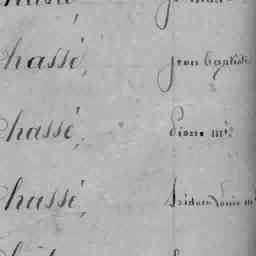 hassé, Jean Baptiste
hassé, Pierre mtre
hassé, Isidore Louis m